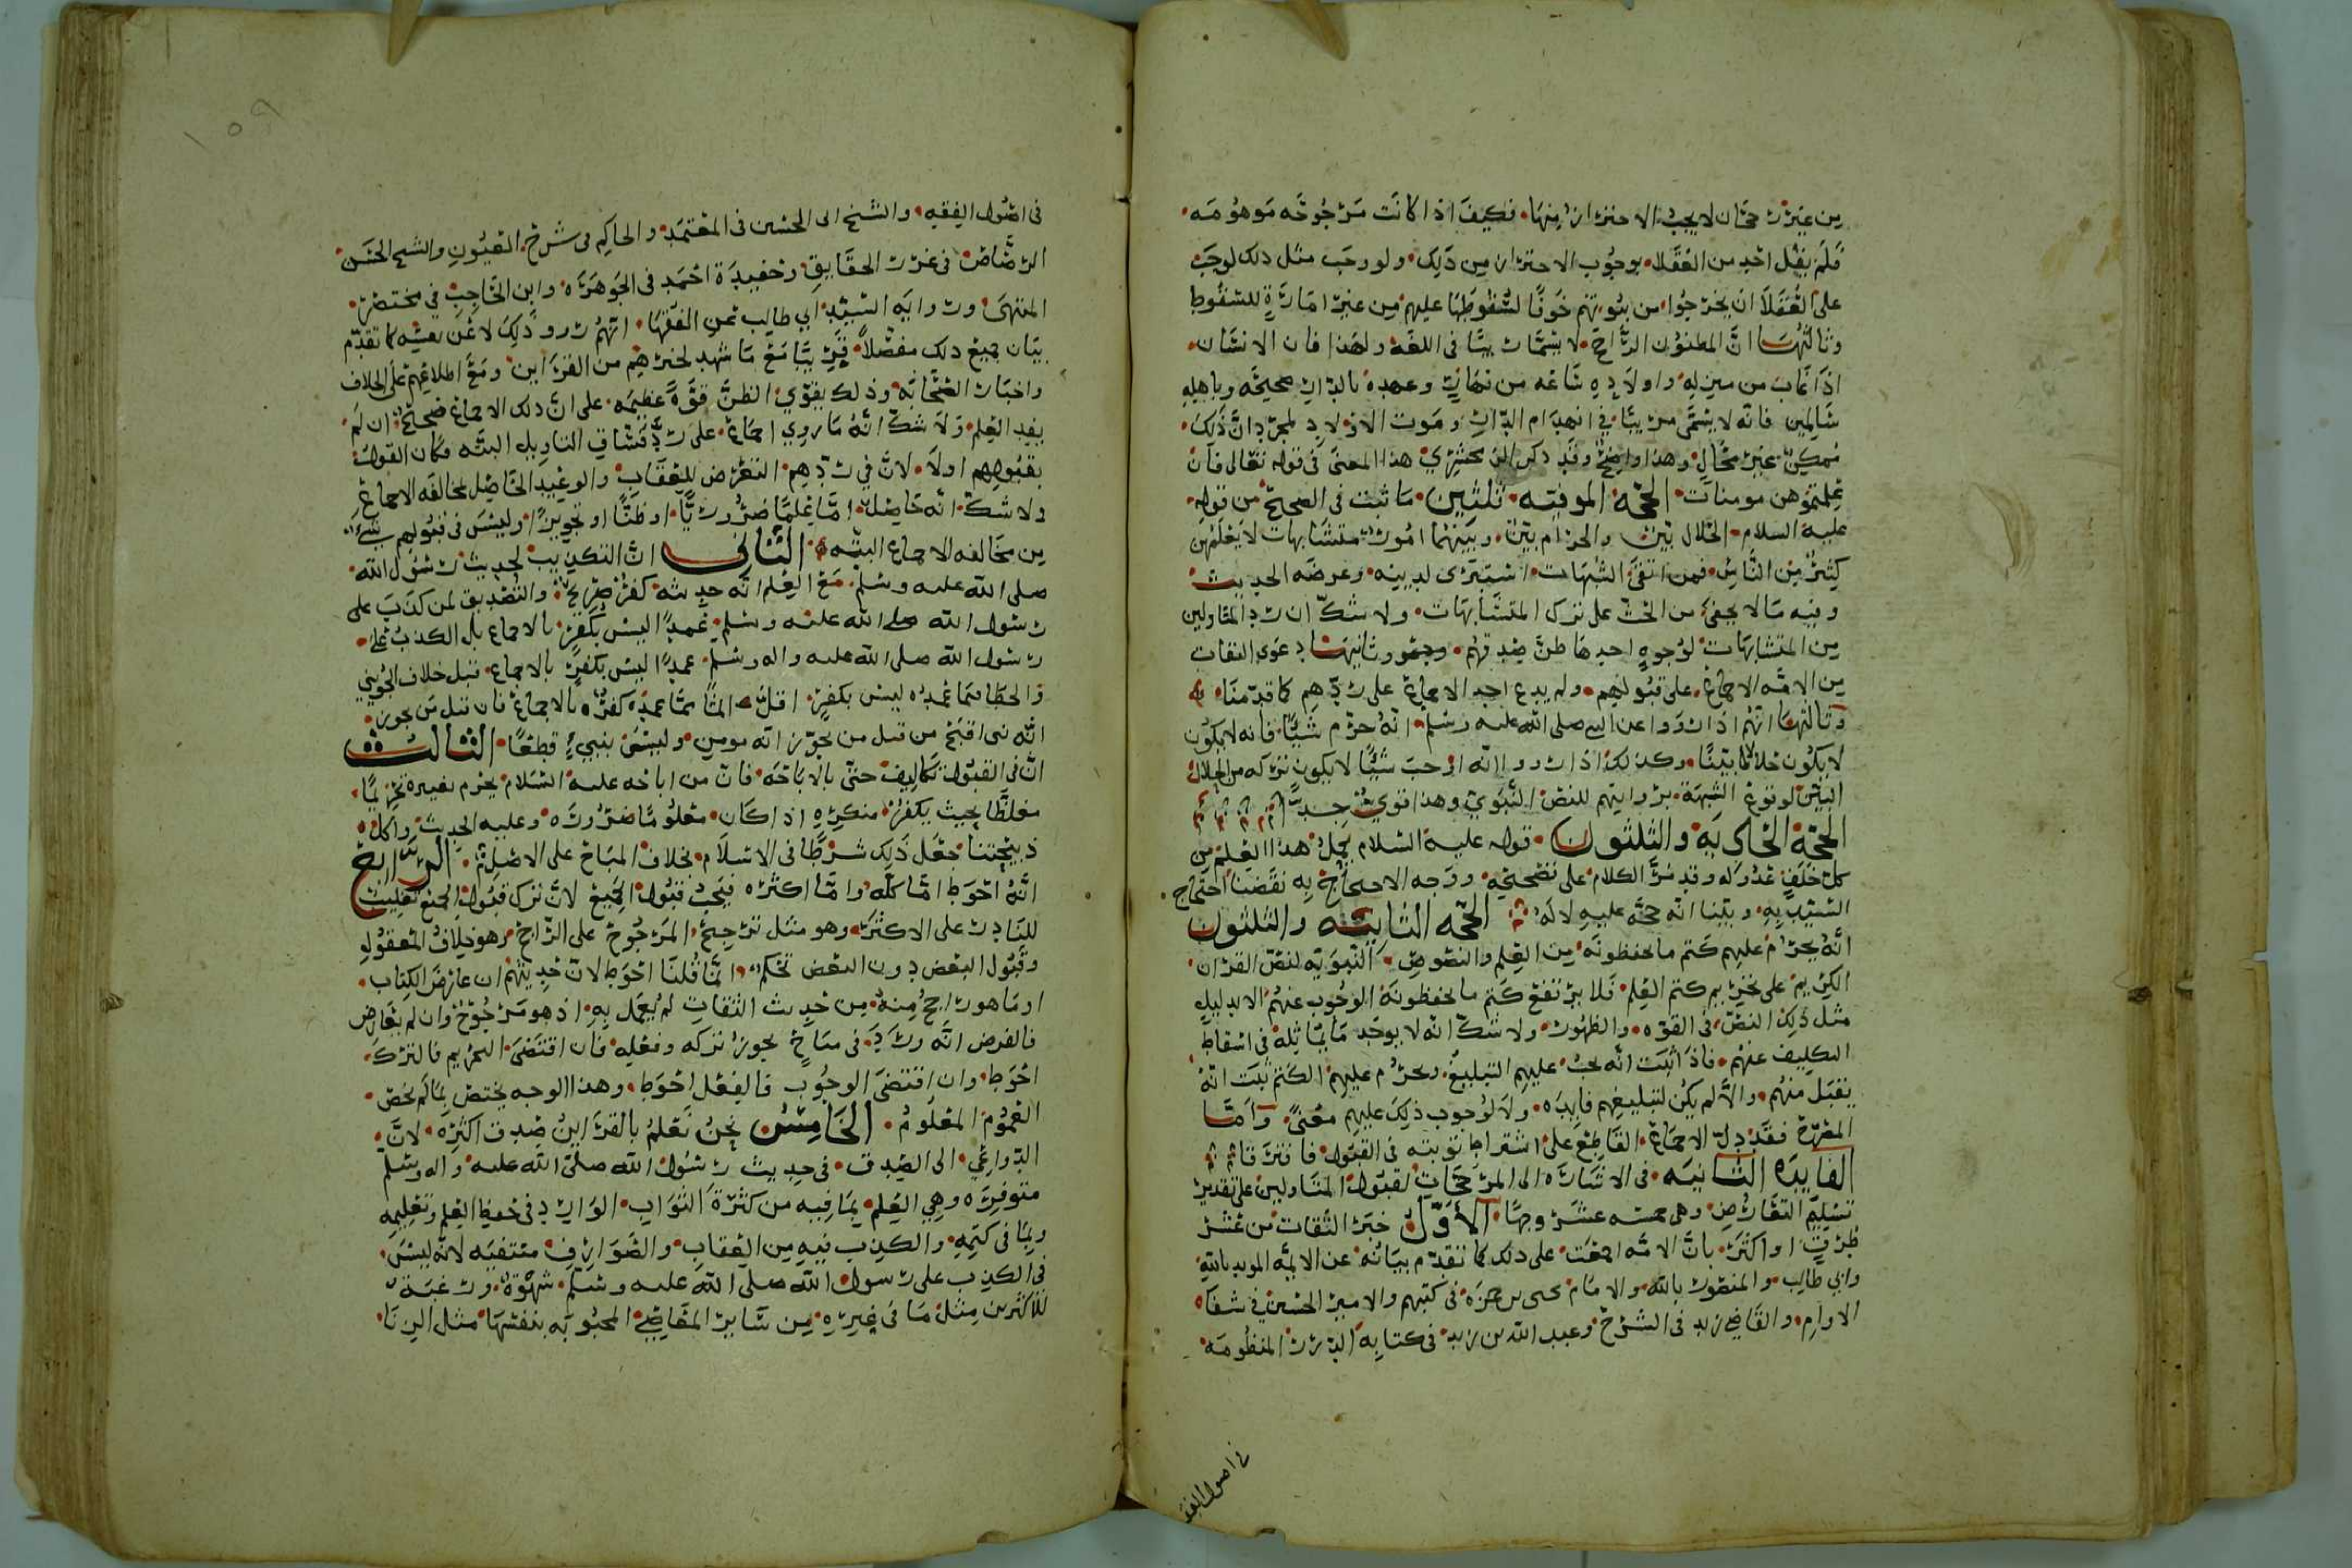 من غير رجحان لا يجب الاحتراز منها فكيف اذا كانت مرجوحه موهومه
فلم يقل احد من العقلا بوجوب الاحتراز من ذلك ولو وجب مثل ذلك لوجب
على العقلا ان يخرجوا من بيوتهم خوفا لسقوطها عليهم من غير امارة للسقوط
وثالثها ان المظنون الراجح لا يسمى ريبا في اللغه ولهذا فان الانسان
اذا غاب من منزله واولاده ساعه من نهار وعهده بالدار صحيحه وباهله
سالمين فانه لا يسمى مريبا في انهدام الدار وموت الاولاد لمجرد ان ذلك
ممكن غير محال وهذا واضح وقد ذكر الزمخشري هذا المعنى في قوله تعالى فان
علمتموهن مومنات الحجة الموفيه ثلثين ما ثبت في الصحيح من قوله
عليه السلام الحلال بين والحرام بين وبينهما امور متشابهات لا يعلمهن
كثير من الناس فمن اتقى الشبهات استبرى لدينه وعرضه الحديث
وفيه ما لا يخفى من الحث على ترك المتشابهات ولا شك ان رد المتاولين
من المتشابهات لوجوه احدها ظن صدقهم وثانيها دعوى الثقات
من الامه الاجماع على قبولهم ولم يدع احد الاجماع على ردهم كما قدمنا
وثالثها انهم اذا رووا عن النبي صلى الله عليه وسلم انه حرم شيا فانه لا يكون
لا يكون حلالا بينا وكذلك اذا رووا انه اوجب شيا لا يكون تركه من الحلال
البين لوقوع الشبهة بروايتهم للنص النبوي وهذا قوي جدا
الحجة الحاديه والثلثون قوله عليه السلام يحمل هذا العلم من
كل خلف عدوله وقد مر الكلام على تصحيحه ووجه الاحتجاج به نقضنا احتجاج
السيد به وبينا انه حجه عليه لا له الحجه الثانيه والثلثون
انه يحرم عليهم كتم ما يحفظونه من العلم والنصوص النبويه لنص القران
الكريم على تحريم كتم العلم فلا يرتفع كتم ما يحفظونه الوجوب عنهم الا بدليل
مثل ذلك النص في القوه والظهور ولا شك انه لا يوجد ما يماثله في اسقاط
التكليف عنهم فاذا ثبت انه يجب عليهم التبليغ ويحرم عليهم الكتم ثبت انه
يقبل منهم والا لم يكن لتبليغهم فايده ولا لوجوب ذلك عليهم معنى واما
المصرح فقد دل الاجماع القاطع على اشتراط توبته في القبول فافترقا
الفايده الثانيه في الاشاره الى المرجحات لقبول المتاولين على تقدير
تسليم التعارض وهي خمسه عشر وجها الاول خبر الثقات من عشر
طرق او اكثر بان الامه اجمعت على ذلك كما تقدم بيانه عن الايمه المويد بالله
وابي طالب والمنصور بالله والامام يحيى بن حمزه في كتبهم والامير الحسين في شفا
الاوام والقاضي زيد في الشرح وعبد الله بن زيد في كتابه الدرر المنظومه
في اصول الفقه
١٥٩
في اصول الفقه والشيخ ابي الحسين في المعتمد والحاكم في شرح العيون والشيخ الحسن
الرصاص في غرر الحقايق وحفيده احمد في الجوهره وابن الحاجب في مختصر
المنتهى ورواية السيد ابي طالب عن الفقها انهم رووا ذلك لا عن نفسه كما تقدم
بيان جميع ذلك مفصلا قريبا مع ما شهد لخبرهم من القراين ومع اطلاعهم على الخلاف
واخبار الصحابه وذلك يقوي الظن قوة عظيمه على ان ذلك الاجماع صحيح ان لم
يفد العلم ولا شك انه ما روي اجماع على رد فساق التاويل البته فكان القول
بقبولهم اولا لان في ردهم التعرض للعقاب والوعيد الحاصل لمخالفه الاجماع
ولا شك انه حاصل اما علما ضروريا او ظنا او تجويزا وليس في قبولهم شي
من مخالفه الاجماع البته الثاني ان التكذيب لحديث رسول الله
صلى الله عليه وسلم مع العلم انه حديثه كفر صريح والتصديق لمن كذب على
رسول الله صلى الله عليه وسلم عمدا ليس بكفر بالاجماع بل الكذب على
رسول الله صلى الله عليه واله وسلم عمدا ليس بكفر بالاجماع قبل خلاف الجويني
والخطا فيما عمده ليس بكفر اقل اثما مما عمده كفر بالاجماع فان قتل من يجوز
انه نبي اقبح من قتل من يجوز انه مومن وليس بنبي قطعا الثالث
ان في القبول تكاليف حتى بالاباحه فان من اباحه عليه السلام يحرم تغييره تحريما
مغلظا بحيث يكفر منكره اذا كان معلوما ضروره وعليه الحديث واكل
ذبيحتنا جعل ذلك شرطا في الاسلام بخلاف المباح على الاصل الرابع
انه احوط اما كله واما اكثره فيجب قبول الجميع لان ترك قبول الجميع تغليب
للنادر على الاكثر وهو مثل ترجيح المرجوح على الراجح وهو خلاف المعقول
وقبول البعض دون البعض تحكم انما قلنا احوط لان حديثهم ان عارض الكتاب
او ما هو راجح منه من حديث الثقات لم يعمل به اذ هو مرجوح وان لم يعارض
فالفرض انه ورد في مباح يجوز تركه وفعله فان اقتضى التحريم فالترك
احوط وان اقتضى الوجوب فالفعل احوط وهذا الوجه يختص بما لم يخص
العموم المعلوم الخامس نحن نعلم بالقراين صدق اكثره لان
الدواعي الى الصدق في حديث رسول الله صلى الله عليه واله وسلم
متوفره وهي العلم بما فيه من كثرة الثواب الوارد في حفظ العلم وتعليمه
وبما في كتمه والكذب فيه من العقاب والصوارف منتفيه لانه ليس
في الكذب على رسول الله صلى الله عليه وسلم شهوة ورغبة
للاكثرين مثل ما في غيره من ساير المعاصي المحبوبه بنفسها مثل الزنا